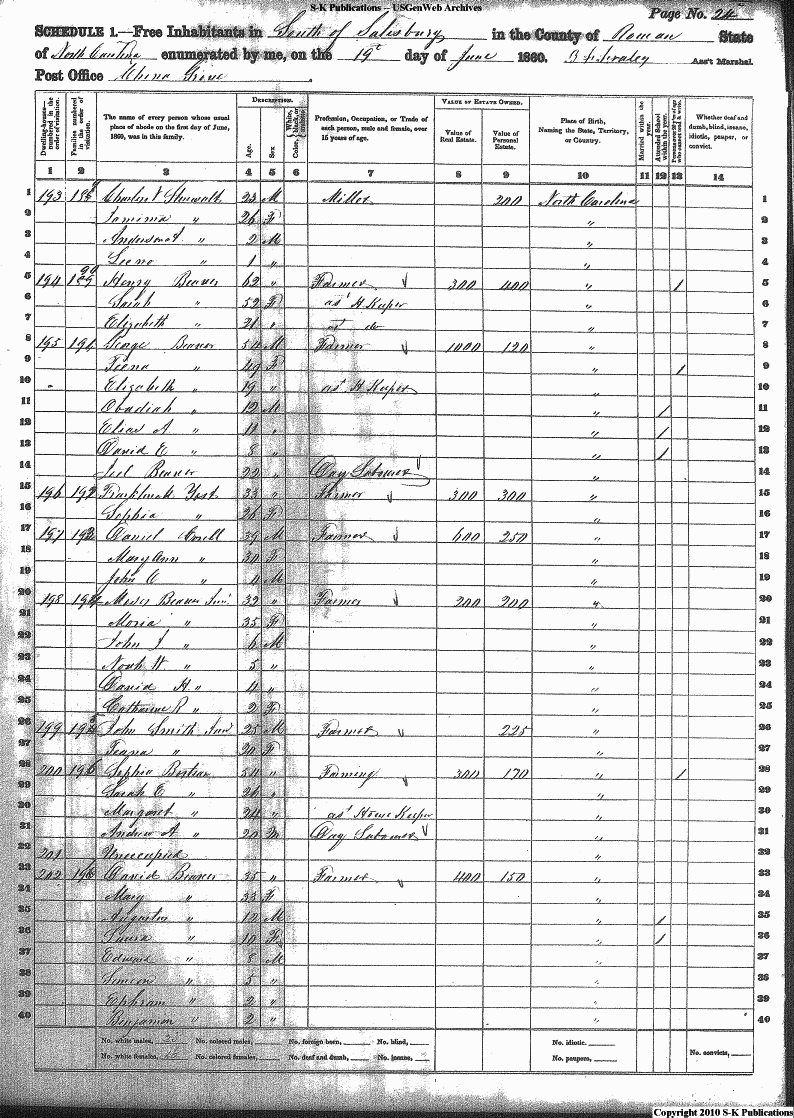 S-K Publications -- USGenWeb Archives
Page No. 24
SCHEDULE 1.—Free Inhabitants in South of Salisbury in the County of Rowan State
of North Carolina enumerated by me, on the 19th day of June 1860. Ass't Marshal.
Post Office China Grove
Dwelling-houses—numbered in the order of visitation.
Families numbered in the order of visitation.
The name of every person whose usual place of abode on the first day of June, 1860, was in this family.
DESCRIPTION.
Age.
Sex
Color, White, black, or mulatto.
Profession, Occupation, or Trade of each person, male and female, over 15 years of age.
VALUE OF ESTATE OWNED.
Value of Real Estate.
Value of Personal Estate.
Place of Birth, Naming the State, Territory, or Country.
Married within the year.
Attended School within the year.
Persons over 20 y'rs of age who cannot read & write.
Whether deaf and dumb, blind, insane, idiotic, pauper, or convict.
1 2 3 4 5 6 7 8 9 10 11 12 13 14
1 193 23 M Miller 200 North Carolina 1
2 Jamima " 26 F " 2
3 " 2 M " 3
4 " 1 " " 4
5 194 Henry Beaver 62 " Farmer 300 400 " 1 5
6 Sarah " 52 F as't H Keeper " 6
7 Elizabeth " 21 " as't do " 7
8 195 191 George Beaver 54 M Farmer 1000 120 " 8
9 " 49 F " 1 9
10 Elizabeth " 19 " as't H Keeper " 10
11 Obadiah " 12 M " 1 11
12 Elias A " 11 " " 1 12
13 David E " 8 " " 1 13
14 Joel Beaver 22 " Day Labourer " 14
15 196 192 Yost 33 " Farmer 300 300 " 15
16 Sophia " 26 F " 16
17 197 193 Daniel Corell 39 M Farmer 600 250 " 17
18 Mary Ann " 30 F " 18
19 John C " 4 M " 19
20 198 194 Moses Beaver Jun' 32 " Farmer 200 200 " 20
21 Moria " 35 F " 21
22 John J " 6 M " 22
23 Noah W " 5 " " 23
24 David H " 4 " " 24
25 Catharine R " 2 F " 25
26 199 195 John Smith Jun 25 M Farmer 225 " 26
27 " 20 F " 27
28 200 196 Sophia 54 " Farming 300 170 " 1 28
29 Sarah C " 26 " " 29
30 Margaret " 24 " as't House Keeper " 30
31 Andrew A " 20 M Day Labourer " 31
32 201 Unoccupied " 32
33 202 David Beaver 35 " Farmer 400 150 " 33
34 Mary " 33 F " 34
35 Augustus " 12 M " 1 35
36 Laura " 10 F " 1 36
37 Edward " 8 M " 37
38 Simeon " 5 " " 38
39 Ephram " 2 " " 39
40 Benjamon " 2 " " 40
No. white males, No. colored males, No. foreign born, No. blind, No. idiotic.
No. white females, No. colored females, No. deaf and dumb, No. insane, No. paupers, No. convicts,
Copyright 2010 S-K Publications